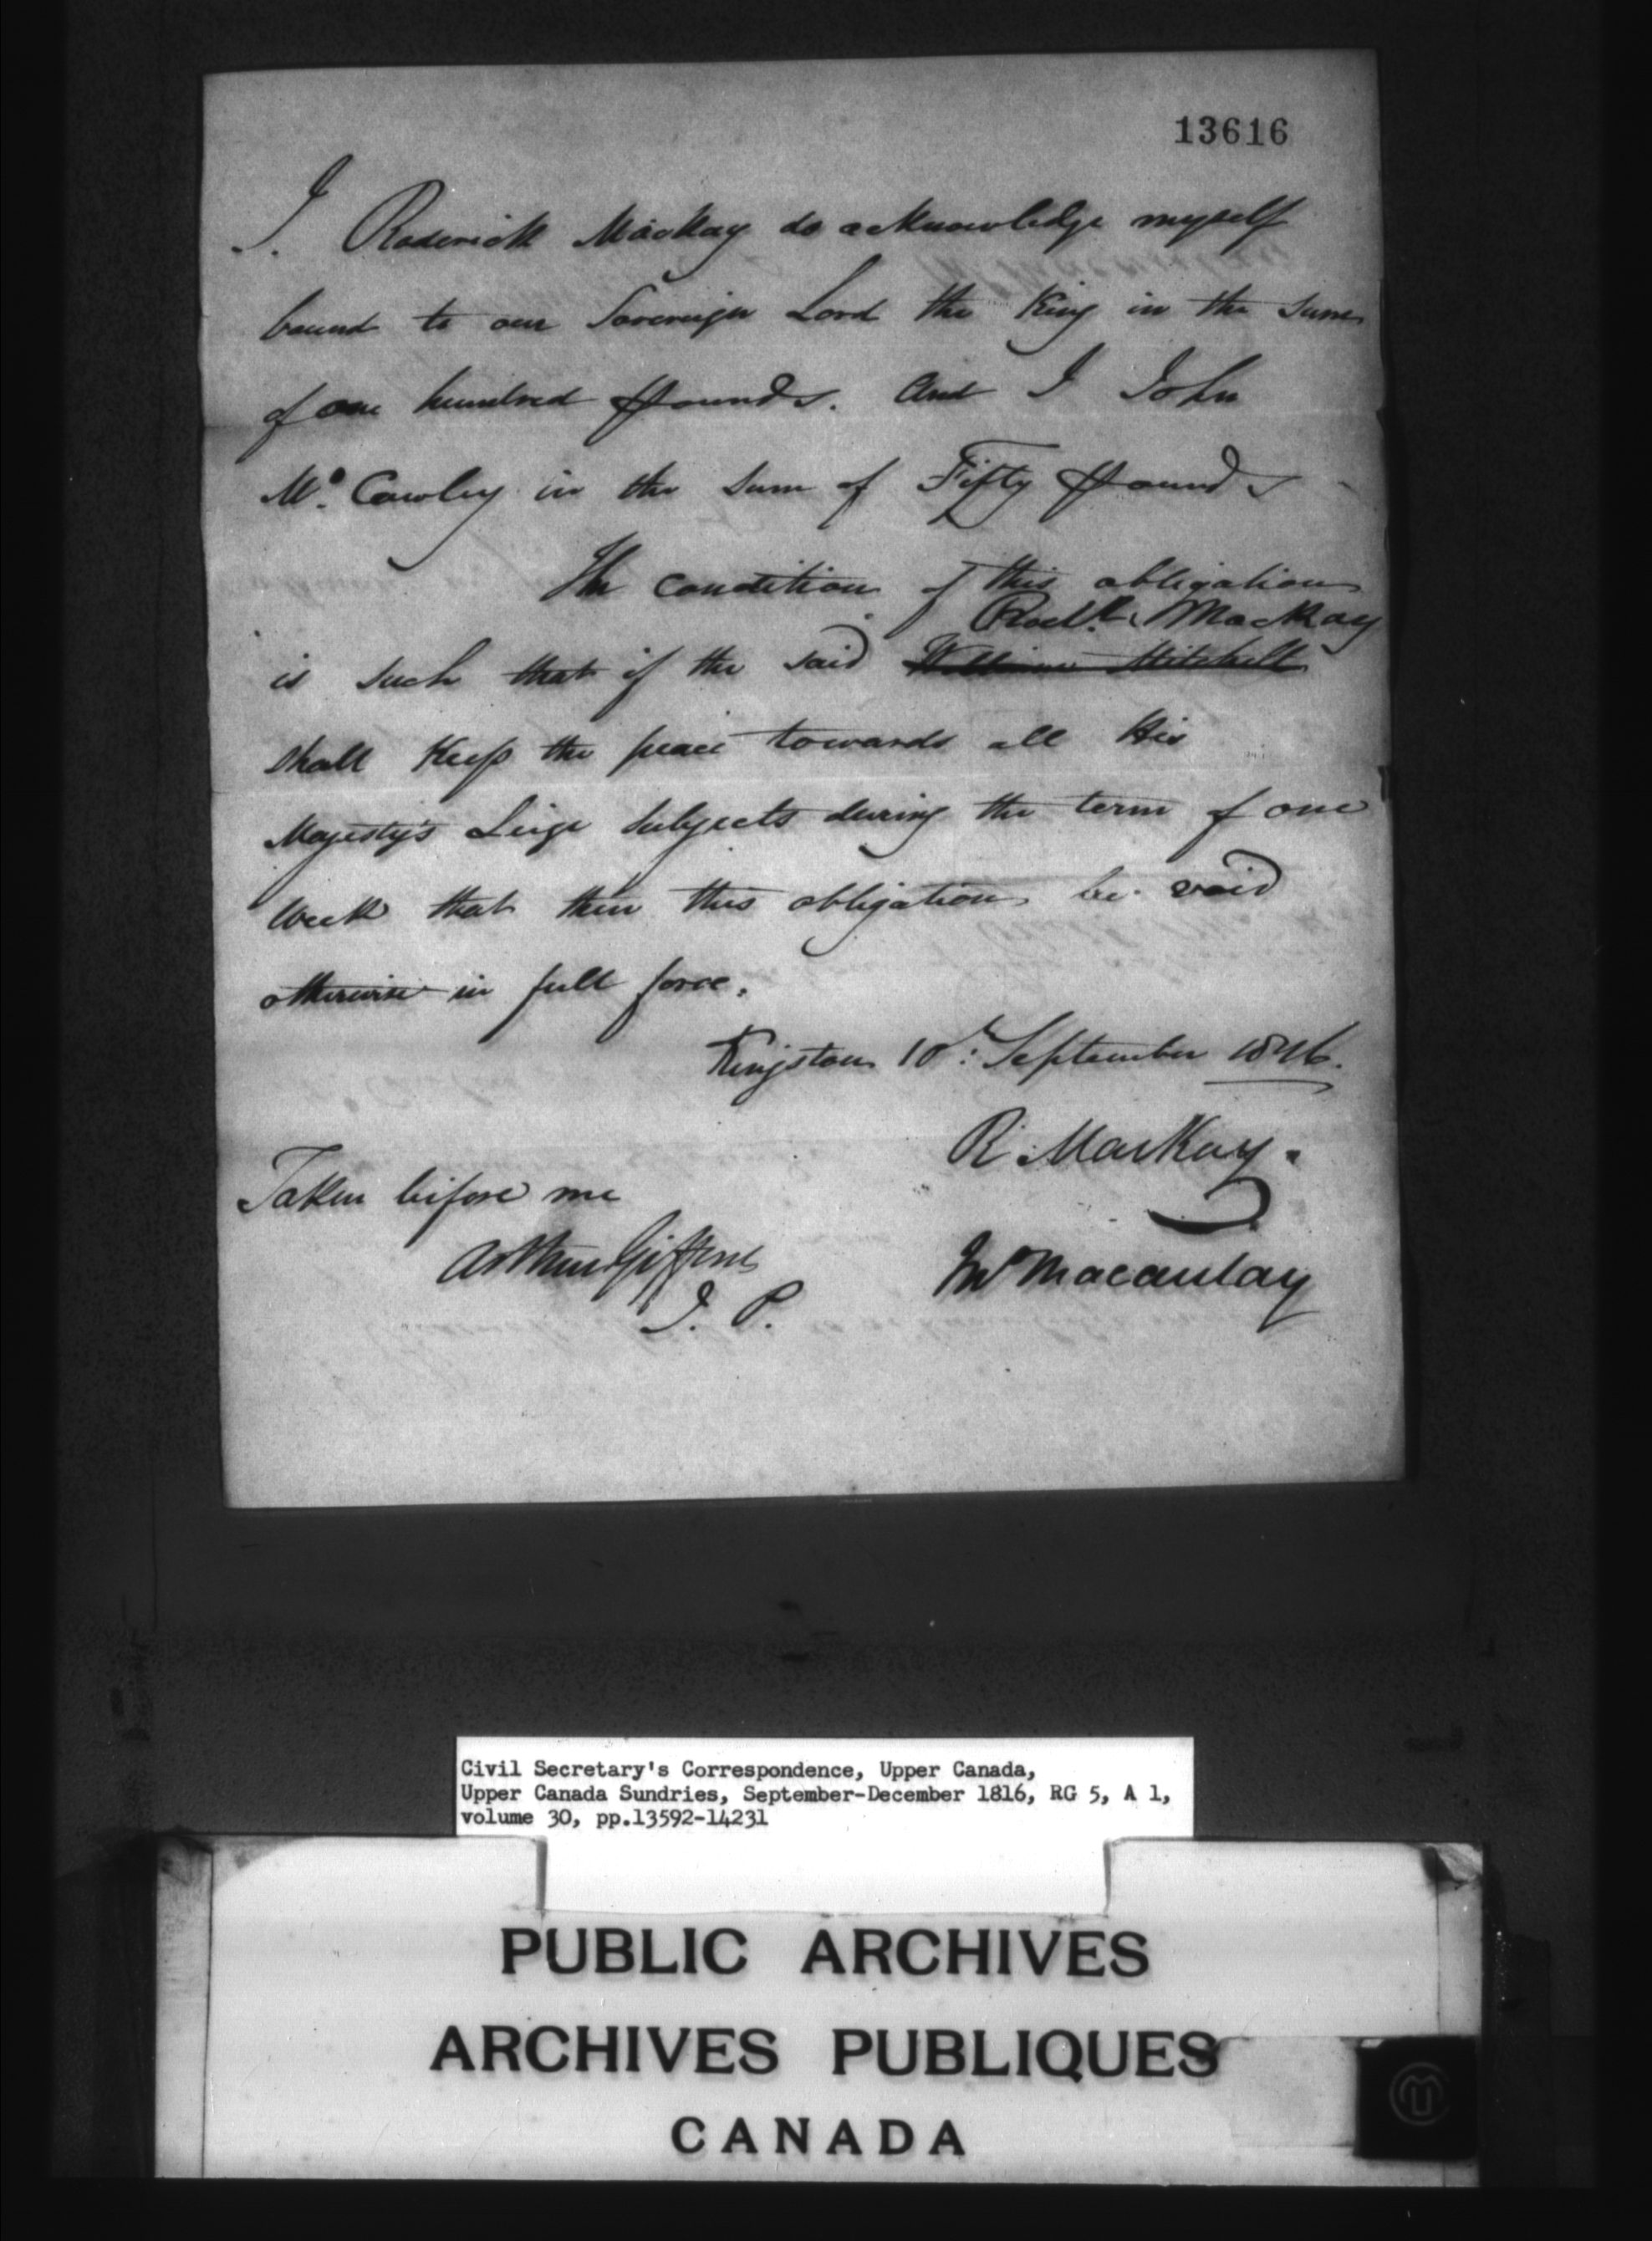 13616
I. Roderick Mackay do acknowledge myself
bound to our Sovereign Lord the King in the sum
of one hundred Pounds. And I John
Mc. Cawley in the sum of Fifty Pounds
The Condition of this obligation
Rodk. Mackay
is such that if the said William Mitchell
shall Keep the peace towards all His
Majesty's Leige subjects during the term of one
Week that then this obligation be void
otherwise in full force.
Kingston 10th: September 1816.
R. MacKay.
Taken before me
Jno Macaulay
J. P.
Civil Secretary's Correspondence, Upper Canada,
Upper Canada Sundries, September-December 1816, RG 5, A 1,
volume 30, pp.13592-14231
PUBLIC ARCHIVES
ARCHIVES PUBLIQUES
CANADA